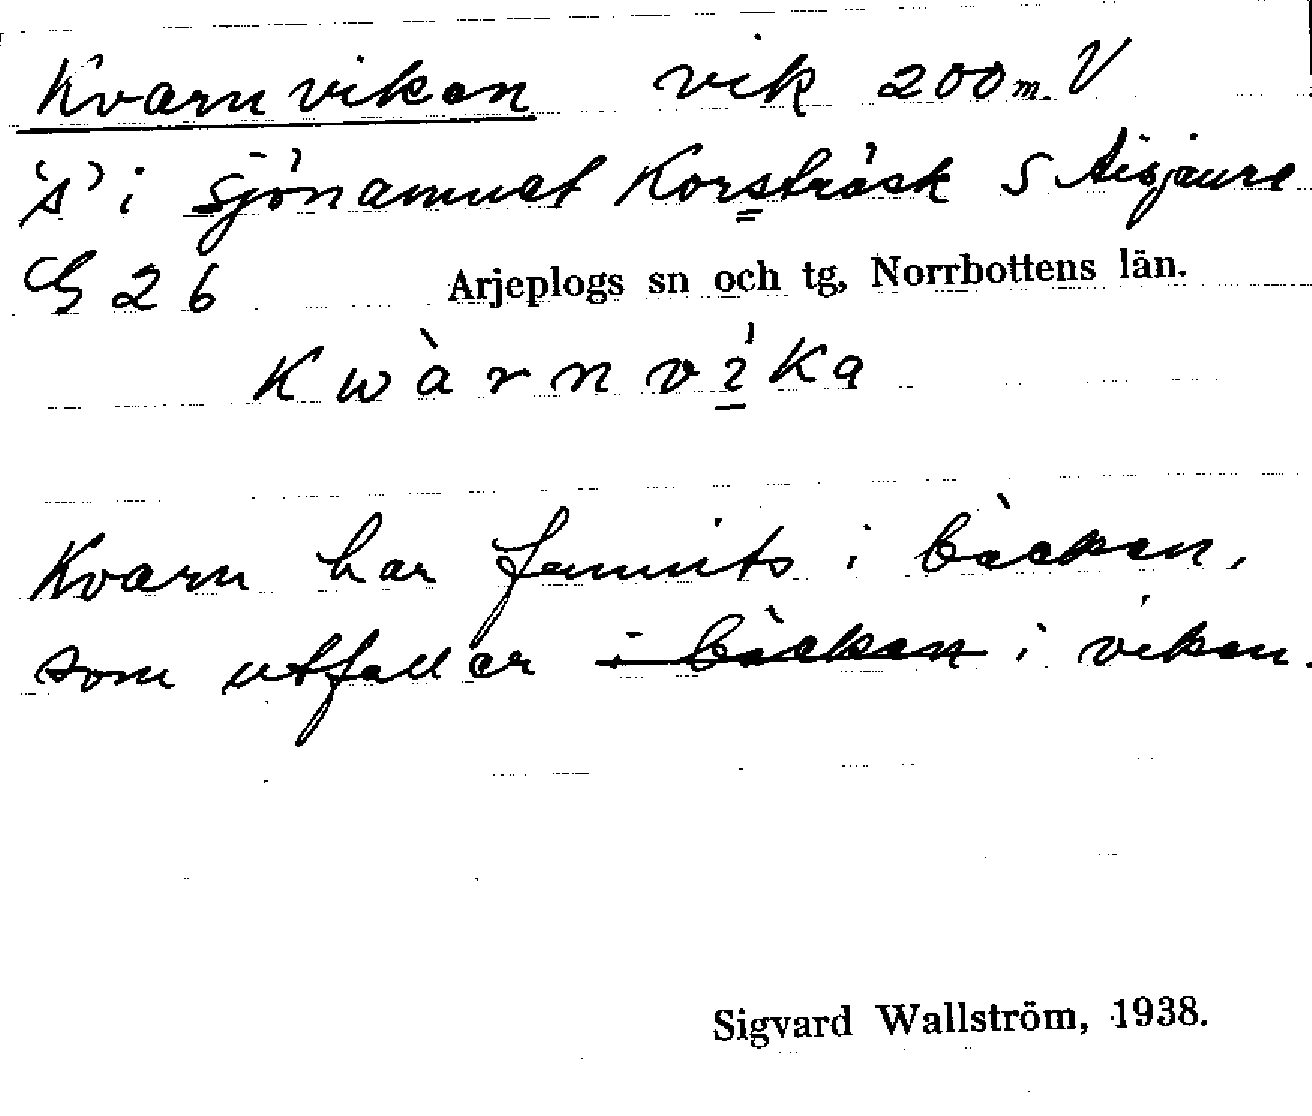 Kvarnviken vik 200 m. V
's' i sjönamnet Korsträsk S Aisjaure
G 26 Arjeplogs sn och tg, Norrbottens län.
Kwàrnvíka
Kvarn har funnits i bäcken,
som utfaller i bäcken i viken.
Sigvard Wallström, 1938.